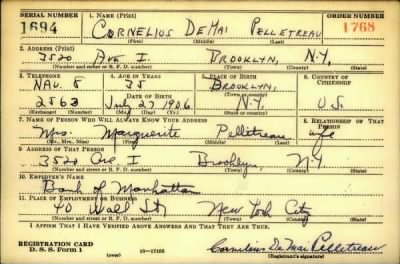 SERIAL NUMBER 1. NAME (Print) ORDER NUMBER
1694 CORNELIOS DEMAI PELLETREAU 1768
(First) (Middle) (Last)
2. ADDRESS (Print)
3520 AVE I. BROOKLYN, N.Y.
(Number and street or R. F. D. number) (Town) (County) (State)
3. TELEPHONE 4. AGE IN YEARS 5. PLACE OF BIRTH 6. COUNTRY OF CITIZENSHIP
NAV. 8 35 BROOKLYN,
DATE OF BIRTH (Town or county)
2563 July 27 1906 N.Y. U.S.
(Exchange) (Number) (Mo.) (Day) (Yr.) (State or country)
7. NAME OF PERSON WHO WILL ALWAYS KNOW YOUR ADDRESS 8. RELATIONSHIP OF THAT PERSON
Mrs. Marguerite Pelletreau wife
(Mr., Mrs., Miss) (First) (Middle) (Last)
9. ADDRESS OF THAT PERSON
3520 Ave I Brooklyn, N.Y
(Number and street or R. F. D. number) (Town) (County) (State)
10. EMPLOYER'S NAME
Bank of Manhattan
11. PLACE OF EMPLOYMENT OR BUSINESS
40 Wall St, New York City
(Number and street or R. F. D. number) (Town) (County) (State)
I AFFIRM THAT I HAVE VERIFIED ABOVE ANSWERS AND THAT THEY ARE TRUE.
REGISTRATION CARD
D. S. S. Form 1 16—17105 Cornelius De Mai Pelletreau
(Registrant's signature)